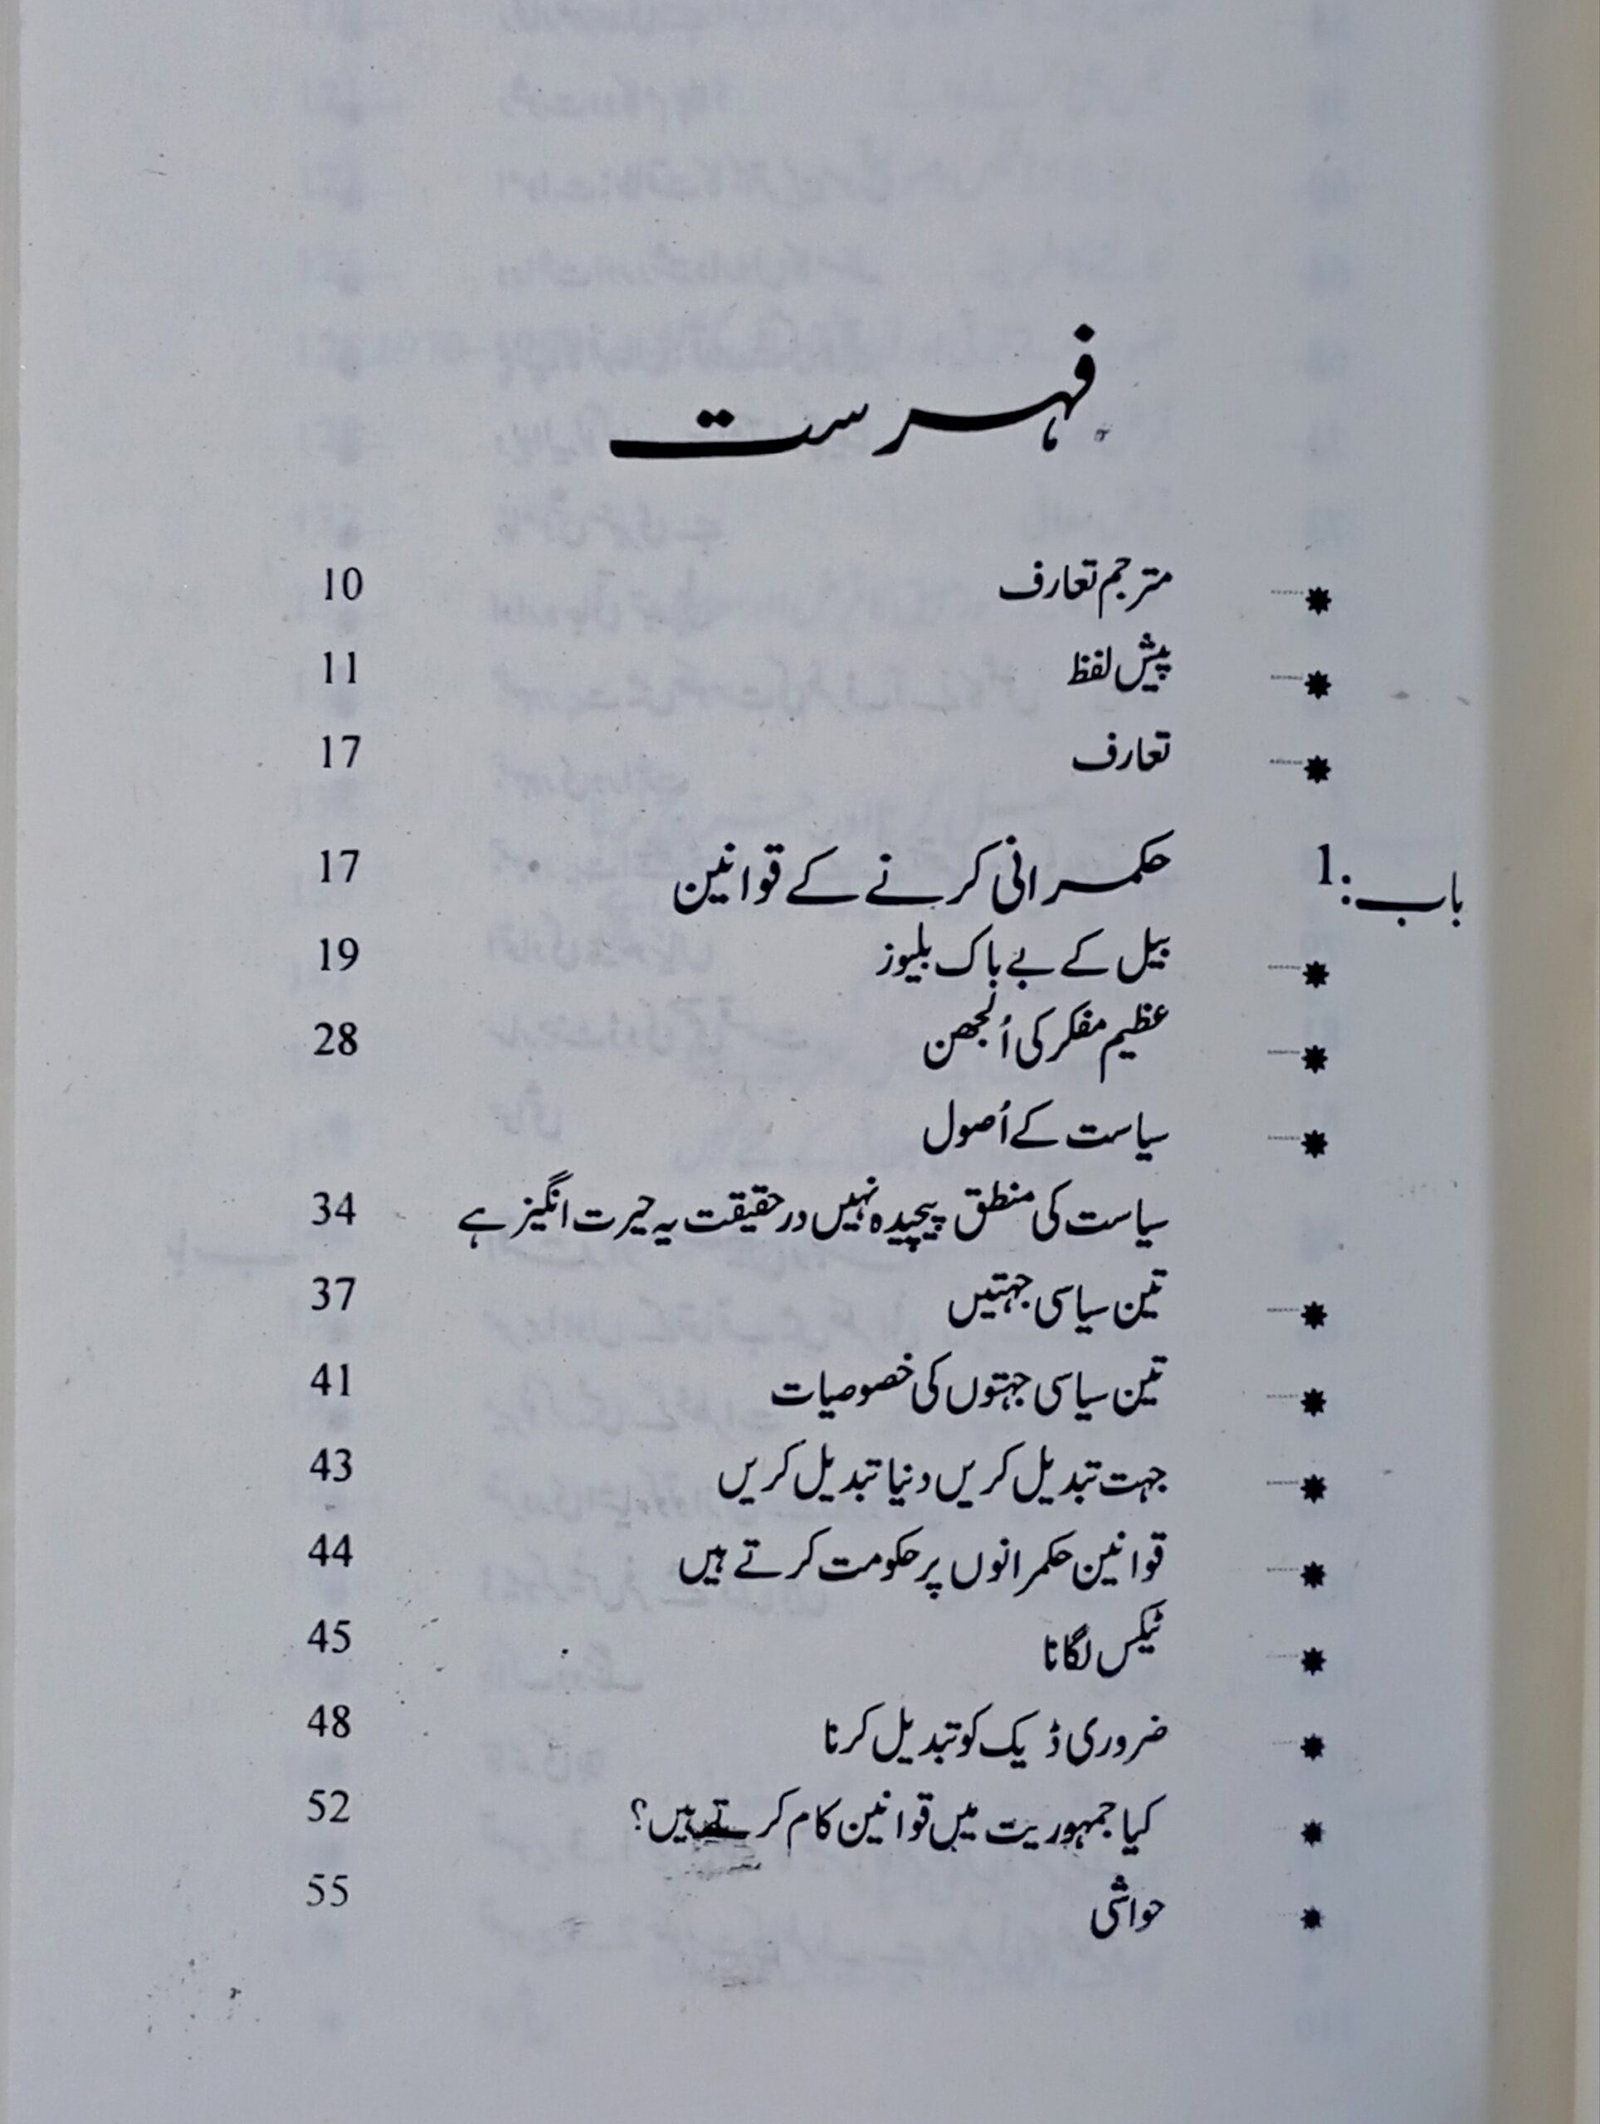 فہرست
مترجم تعارف 10
پیش لفظ 11
تعارف 17
باب:1 حکمرانی کرنے کے قوانین 17
بیل کے بے باک بلیوز 19
عظیم مفکر کی اُلجھن 28
سیاست کے اُصول
سیاست کی منطق پیچیدہ نہیں درحقیقت یہ حیرت انگیز ہے 34
تین سیاسی جہتیں 37
تین سیاسی جہتوں کی خصوصیات 41
جہت تبدیل کریں دنیا تبدیل کریں 43
قوانین حکمرانوں پر حکومت کرتے ہیں 44
ٹیکس لگانا 45
ضروری ڈیک کو تبدیل کرنا 48
کیا جمہوریت میں قوانین کام کرتے ہیں؟ 52
حواشی 55